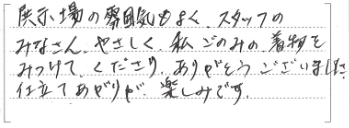 展示場の雰囲気もよく、スタッフの
みなさん、やさしく、私ごのみの着物を
みつけて、くださり、ありがとうございました。
仕立てあがりが、楽しみです。